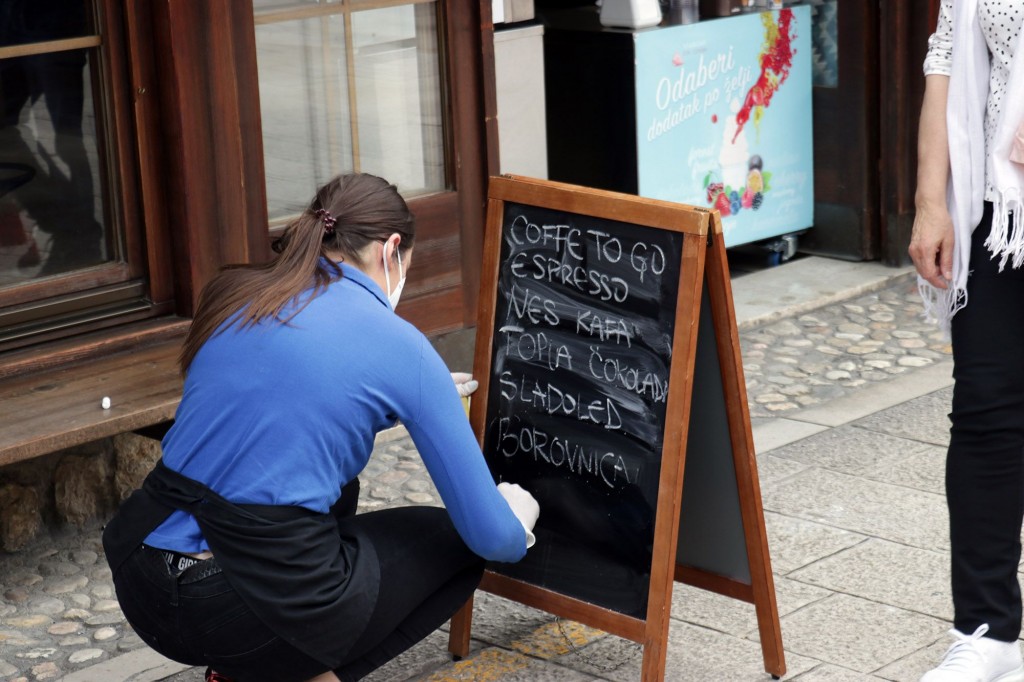 Odaberi
dodatak po želji
COFFE TO GO
ESPRESSO
NES KAFA
TOPLA ČOKOLADA
SLADOLED
BOROVNICA